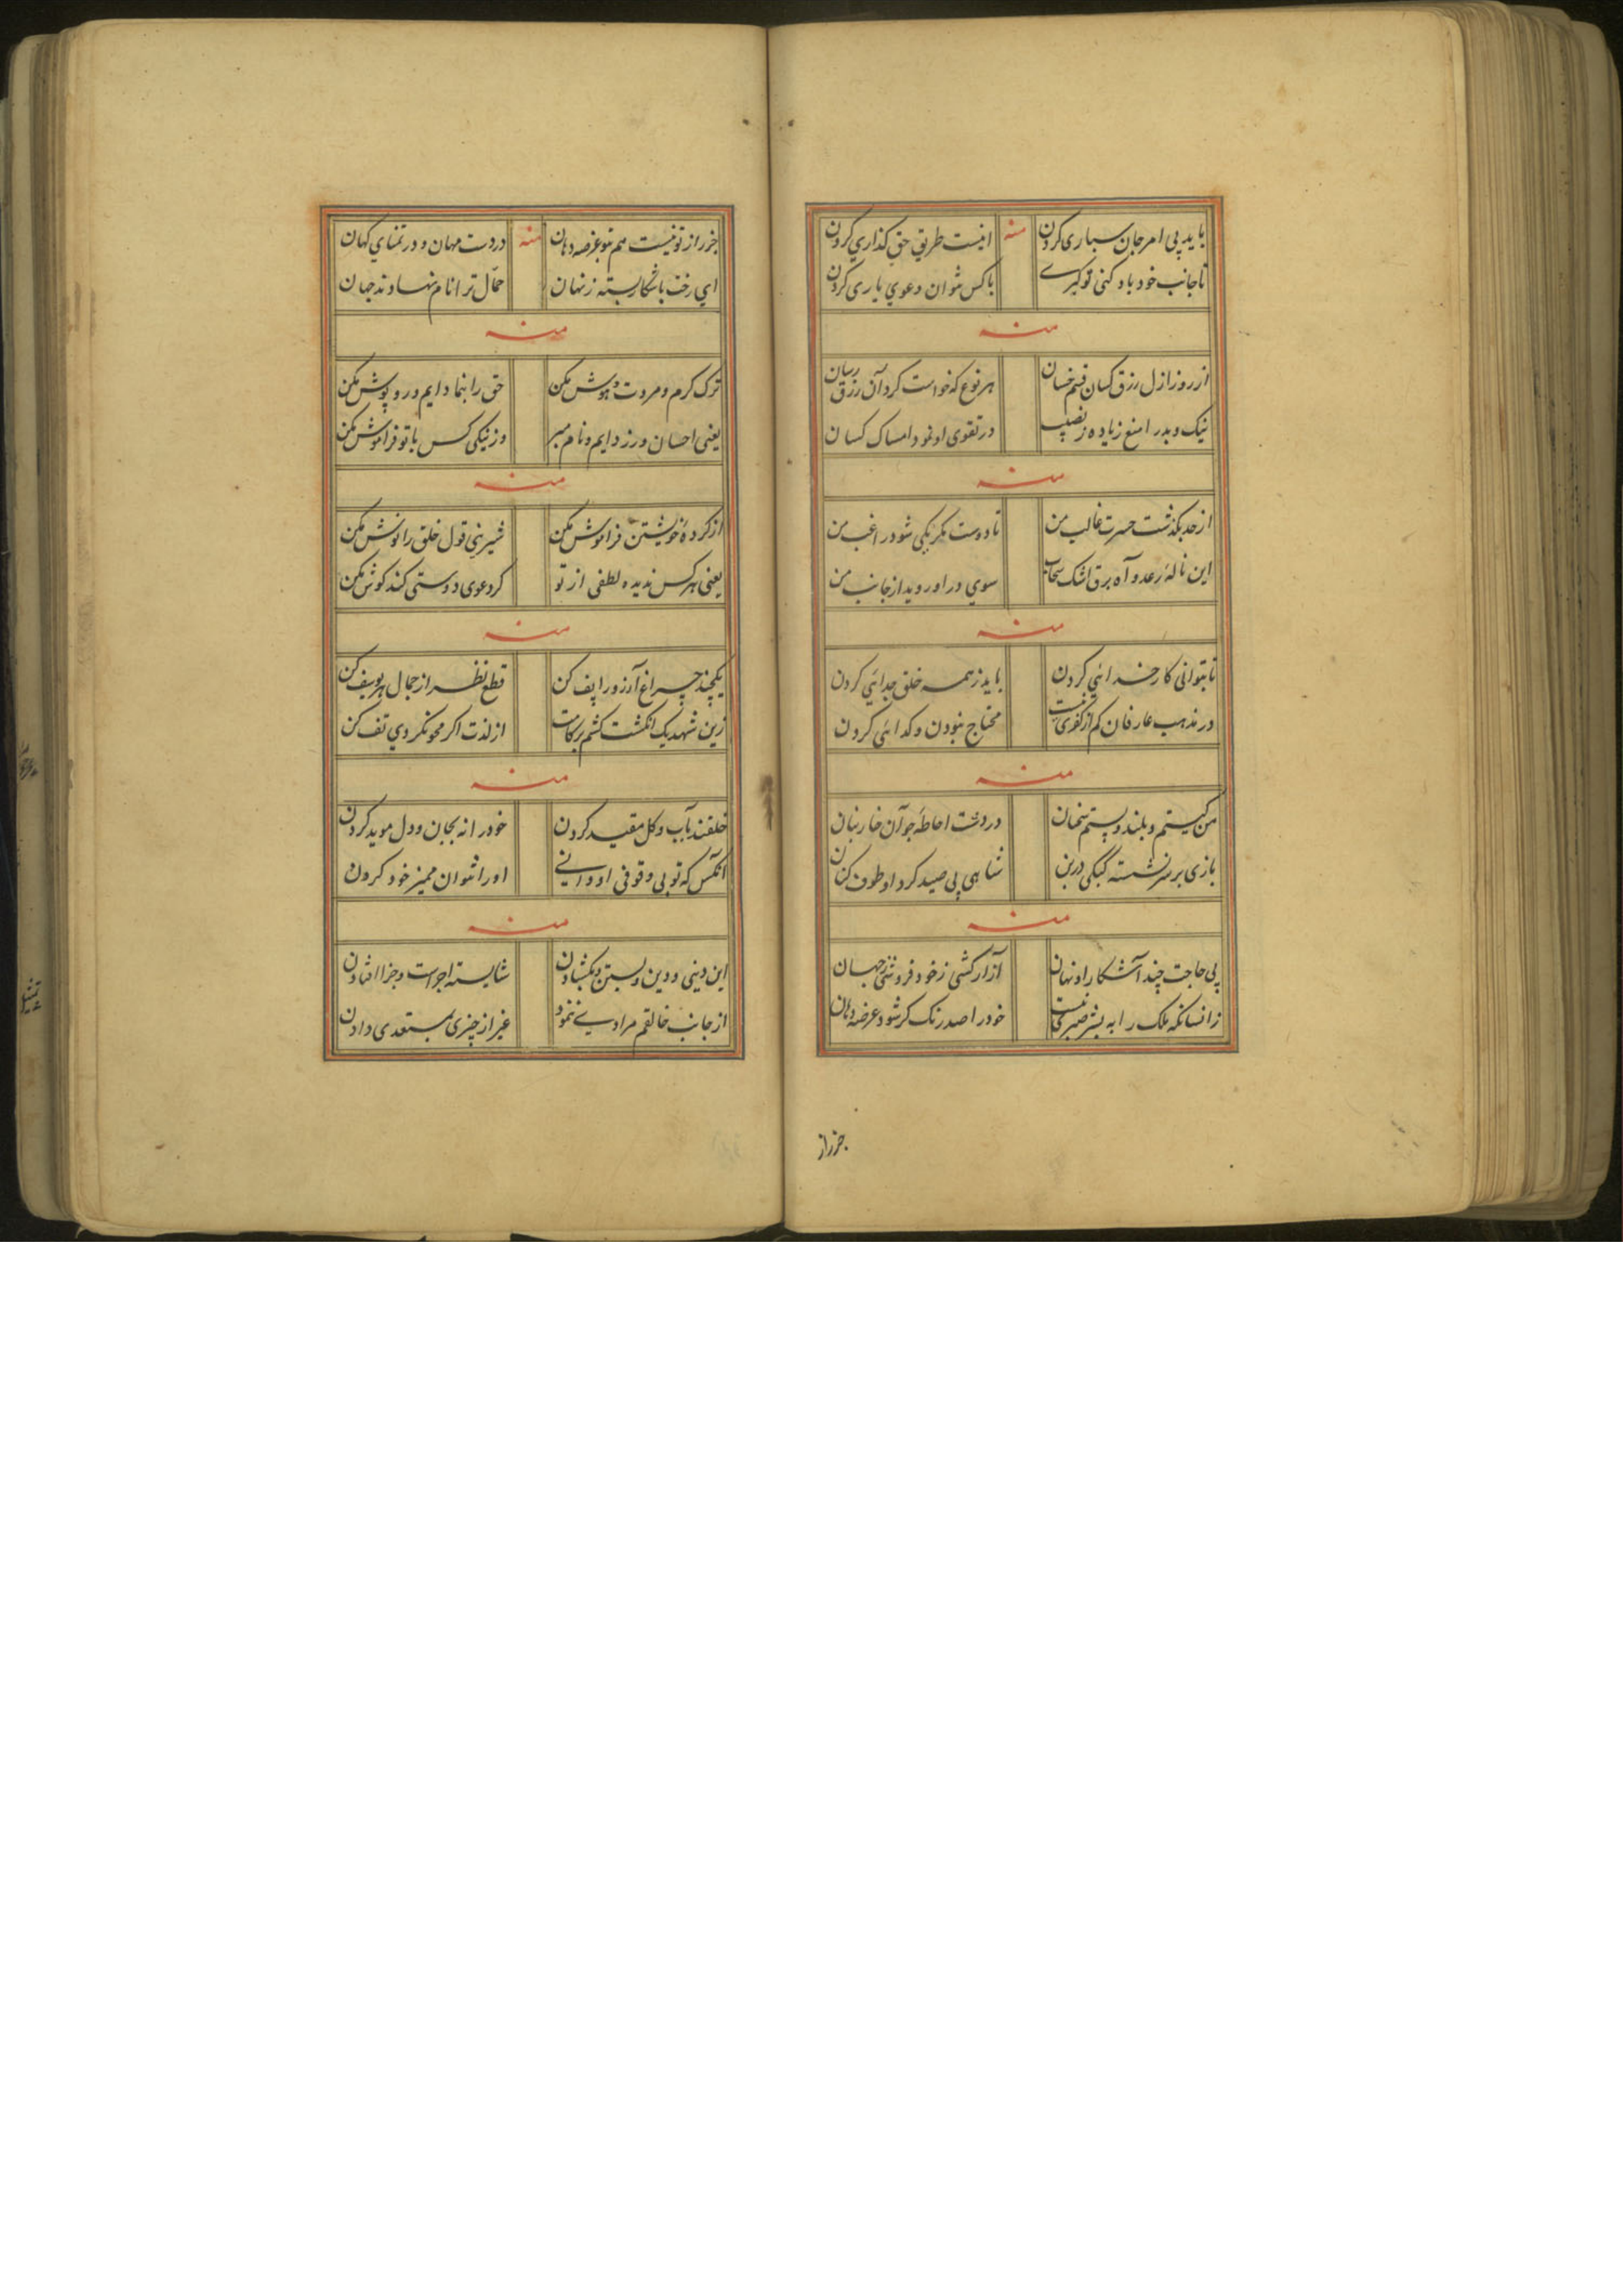 باید پی امر جان سپاری کردن
منه
اینست طریق حق گذاری کردن
تا جانب خود باد کنی توکبری
با کس نتوان دعوی یاری کردن
منه
از روز ازل رزق کسان قسم خسان
هر نوع که خواست کرد آن رزق رسان
نیک و بد را منع زیاده ز نصیب
در تقوی او نمود امساک کسان
منه
از حد بگذشت حسرت غالب من
تا دوست مگر یکی شود راغب من
این نالهٔ رعد و آه برق اشک سحاب
سوی در او روید از جانب من
منه
تا بتوانی کار خدائی کردن
باید ز همه خلق جدائی کردن
در مذهب عارفان کم از کفری نیست
محتاج نبودن و گدائی کردن
منه
من کیستم و بلند و پستم
در دشت احاطهٔ جو آن خار بنان
بازی بر سر نشسته کبکی در بن
شاهی پی صید کرد او طوف کنان
منه
پی حاجت چند آشکارا و نهان
آزار کشی ز خود فروشی جهان
زانسانکه ملک را به بشر نیست
خود را صد رنگ کر شود عرضه دهان
جز راز
جز راز تو نیست هم بتو عرضه دهان
منه
در دست مهان و در تمنای کهان
ای رخت باشکار بسته ز نهان
حمّال تر انام نهادند جهان
منه
ترک کرم و مروت و هوش مکن
حق را بنما دایم و روپوش مکن
یعنی احسان ورز دایم و نام مبر
وز نیکی کس با تو فراموش مکن
منه
از کردهٔ خویشتن فراموش مکن
شیرینی قول خلق را نوش مکن
یعنی هر کس ندیده لطفی از تو
گر دعوی دوستی کند گوش مکن
منه
یکچند چراغ آرزو را پف کن
قطع نظر از جمال هر یوسف کن
زین شهد یک انگشت کشم بر کامت
از لذت اگر محو نگردی تف کن
منه
خلقند بآب و گل مقید کردن
خود را نه بجان و دل موید کردن
آنکس که تو بی وقوفی او دانی
او را نتوان ممیز خود کردن
منه
این دینی و دین و بستن و بگشادن
شایسته اجراست و جزا افتادن
از جانب خالقم مرادی ننمود
غیر از چیزی بمستعدی دادن